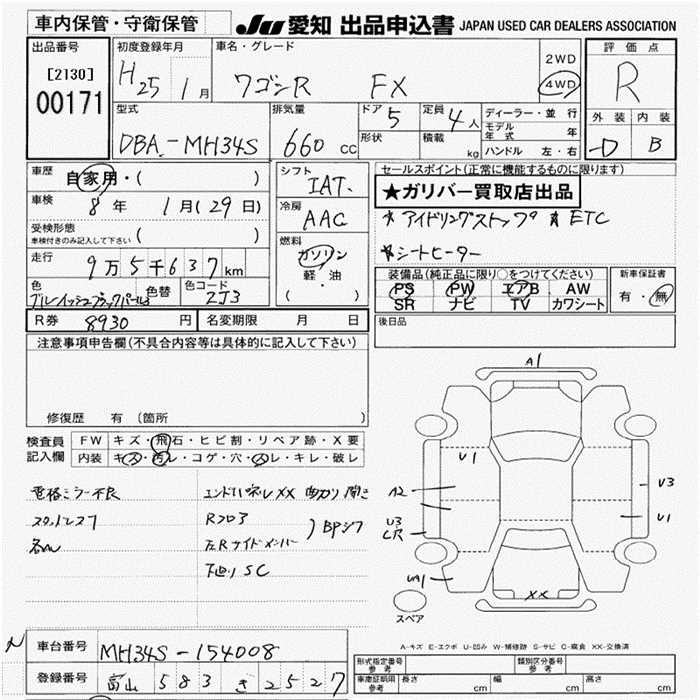 車内保管・守衛保管
JU 愛知 出品申込書 JAPAN USED CAR DEALERS ASSOCIATION
出品番号
[2130]
00171
初度登録年月
H25 1月
車名・グレード
ワゴンR FX
2WD
4WD
評価点
R
外装 内装
D B
型式
DBA-MH34S
排気量
660 cc
ドア 5
形状
定員 4人
積載 kg
ディーラー・並行
モデル年式 年
ハンドル 左・右
車歴 自家用・( )
車検 8年 1月(29日)
受検形態 ( )
車検付きのみ記入して下さい
走行 9万5千637km
色
色替
色コード
ZJ3
シフト
IAT
冷房
AAC
燃料
ガソリン
軽・油
( )
R券 8930円
名変期限 月 日
セールスポイント(正常に機能するものに限ります)
★ガリバー買取店出品
*アイドリングストップ *ETC
*シートヒーター
装備品(純正品に限り○をつけてください)
PS PW エアB AW
SR ナビ TV カワシート
新車保証書
有・無
後日品
注意事項申告欄(不具合内容等は具体的に記入して下さい)
修復歴 有 (箇所 )
検査員記入欄
FW キズ・飛石・ヒビ割・リペア跡・X要
内装 キズ・汚レ・コゲ・穴・スレ・キレ・破レ
電格ミラー不良
スタットレス7
RフロP
左Rサイドメンバー
下廻りSC
A1
U1
A2
U3
U3
U1
UA1
XX
スペア
A-キズ E-エクボ U-凹み W-補修跡 S-サビ C-腐食 XX-交換済
車台番号 MH34S-154008
登録番号 富山 583 き 2527
形式指定番号 参考
類別区分番号 参考
車庫証明用 参考 長さ cm 幅 cm 高さ cm